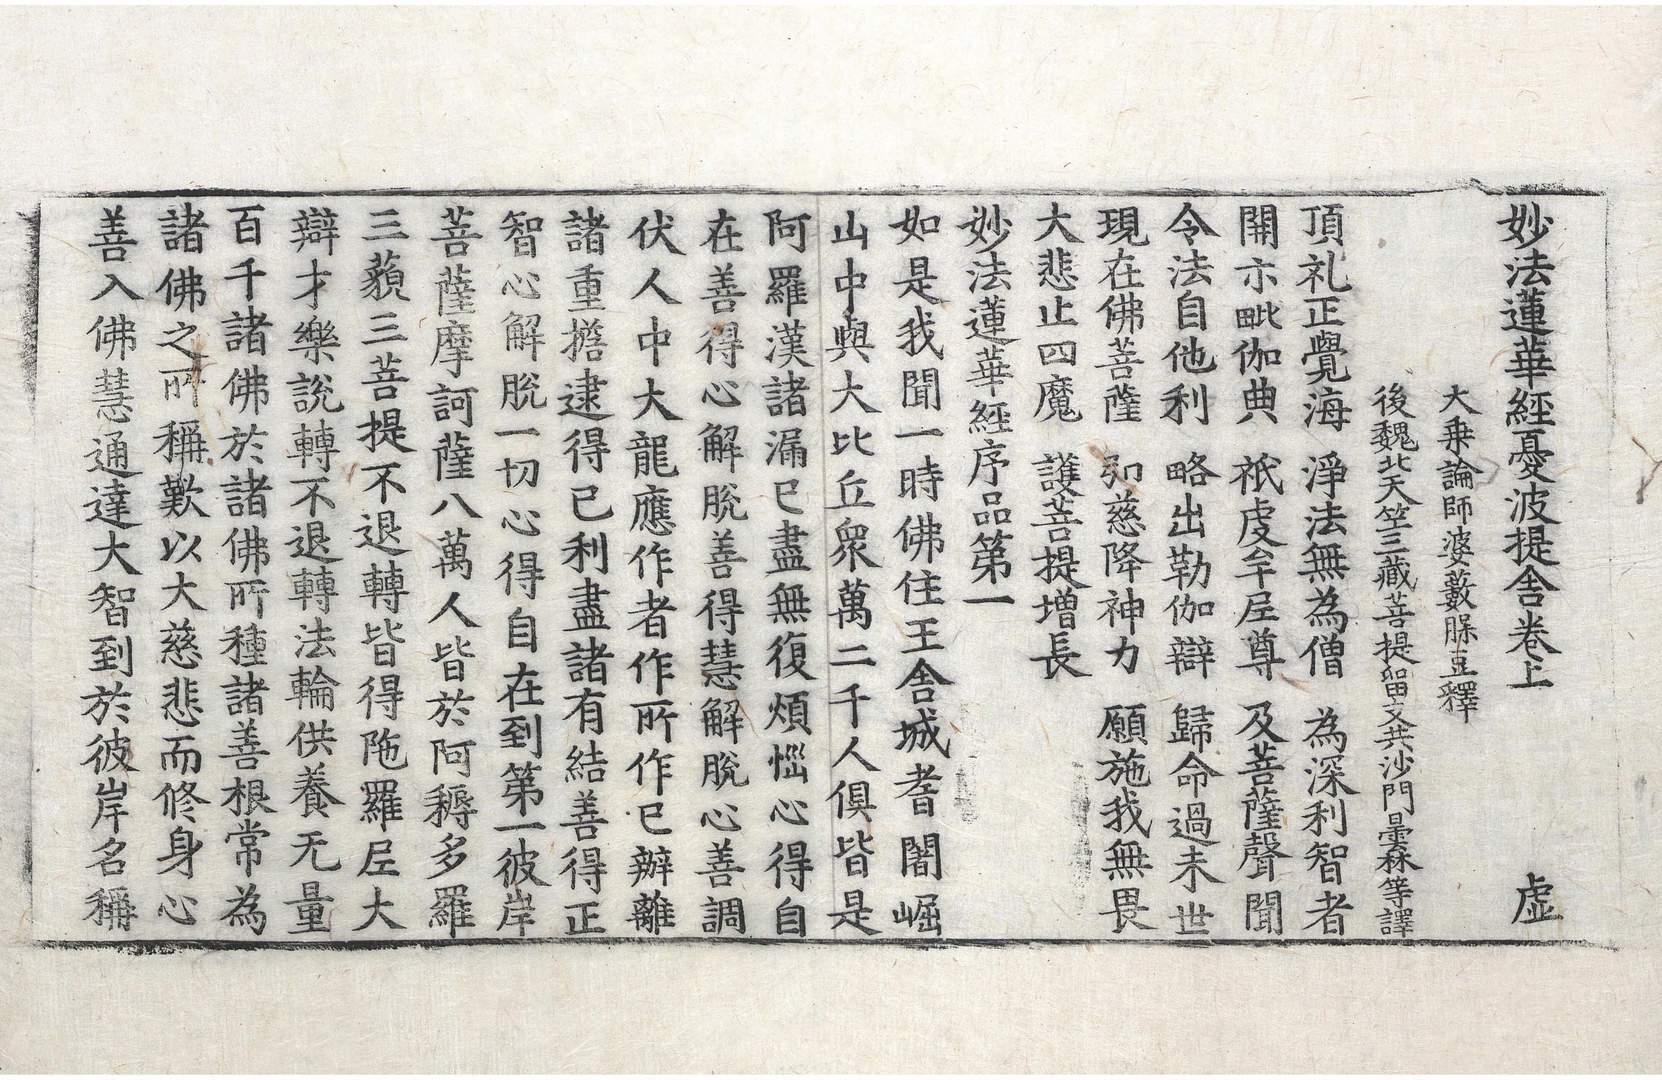 妙法蓮華經憂波提舍卷上 虛
大乗論師婆藪脲豆釋
後魏北天竺三藏菩提留支共沙門曇林等譯
頂礼正覺海 淨法無為僧 為深利智者
開示毗伽典 祇虔牟尼尊 及菩薩聲聞
令法自他利 略出勒伽辯 歸命過未世
現在佛菩薩 弘慈降神力 願施我無畏
大悲止四魔 護菩提增長
妙法蓮華經序品第一
如是我聞一時佛住王舍城耆闍崛
山中與大比丘眾萬二千人俱皆是
阿羅漢諸漏已盡無復煩惱心得自
在善得心解脫善得慧解脫心善調
伏人中大龍應作者作所作已辦離
諸重擔逮得已利盡諸有結善得正
智心解脫一切心得自在到第一彼岸
菩薩摩訶薩八萬人皆於阿耨多羅
三藐三菩提不退轉皆得陁羅尼大
辯才樂說轉不退轉法輪供養无量
百千諸佛於諸佛所種諸善根常為
諸佛之所稱歎以大慈悲而修身心
善入佛慧通達大智到於彼岸名稱